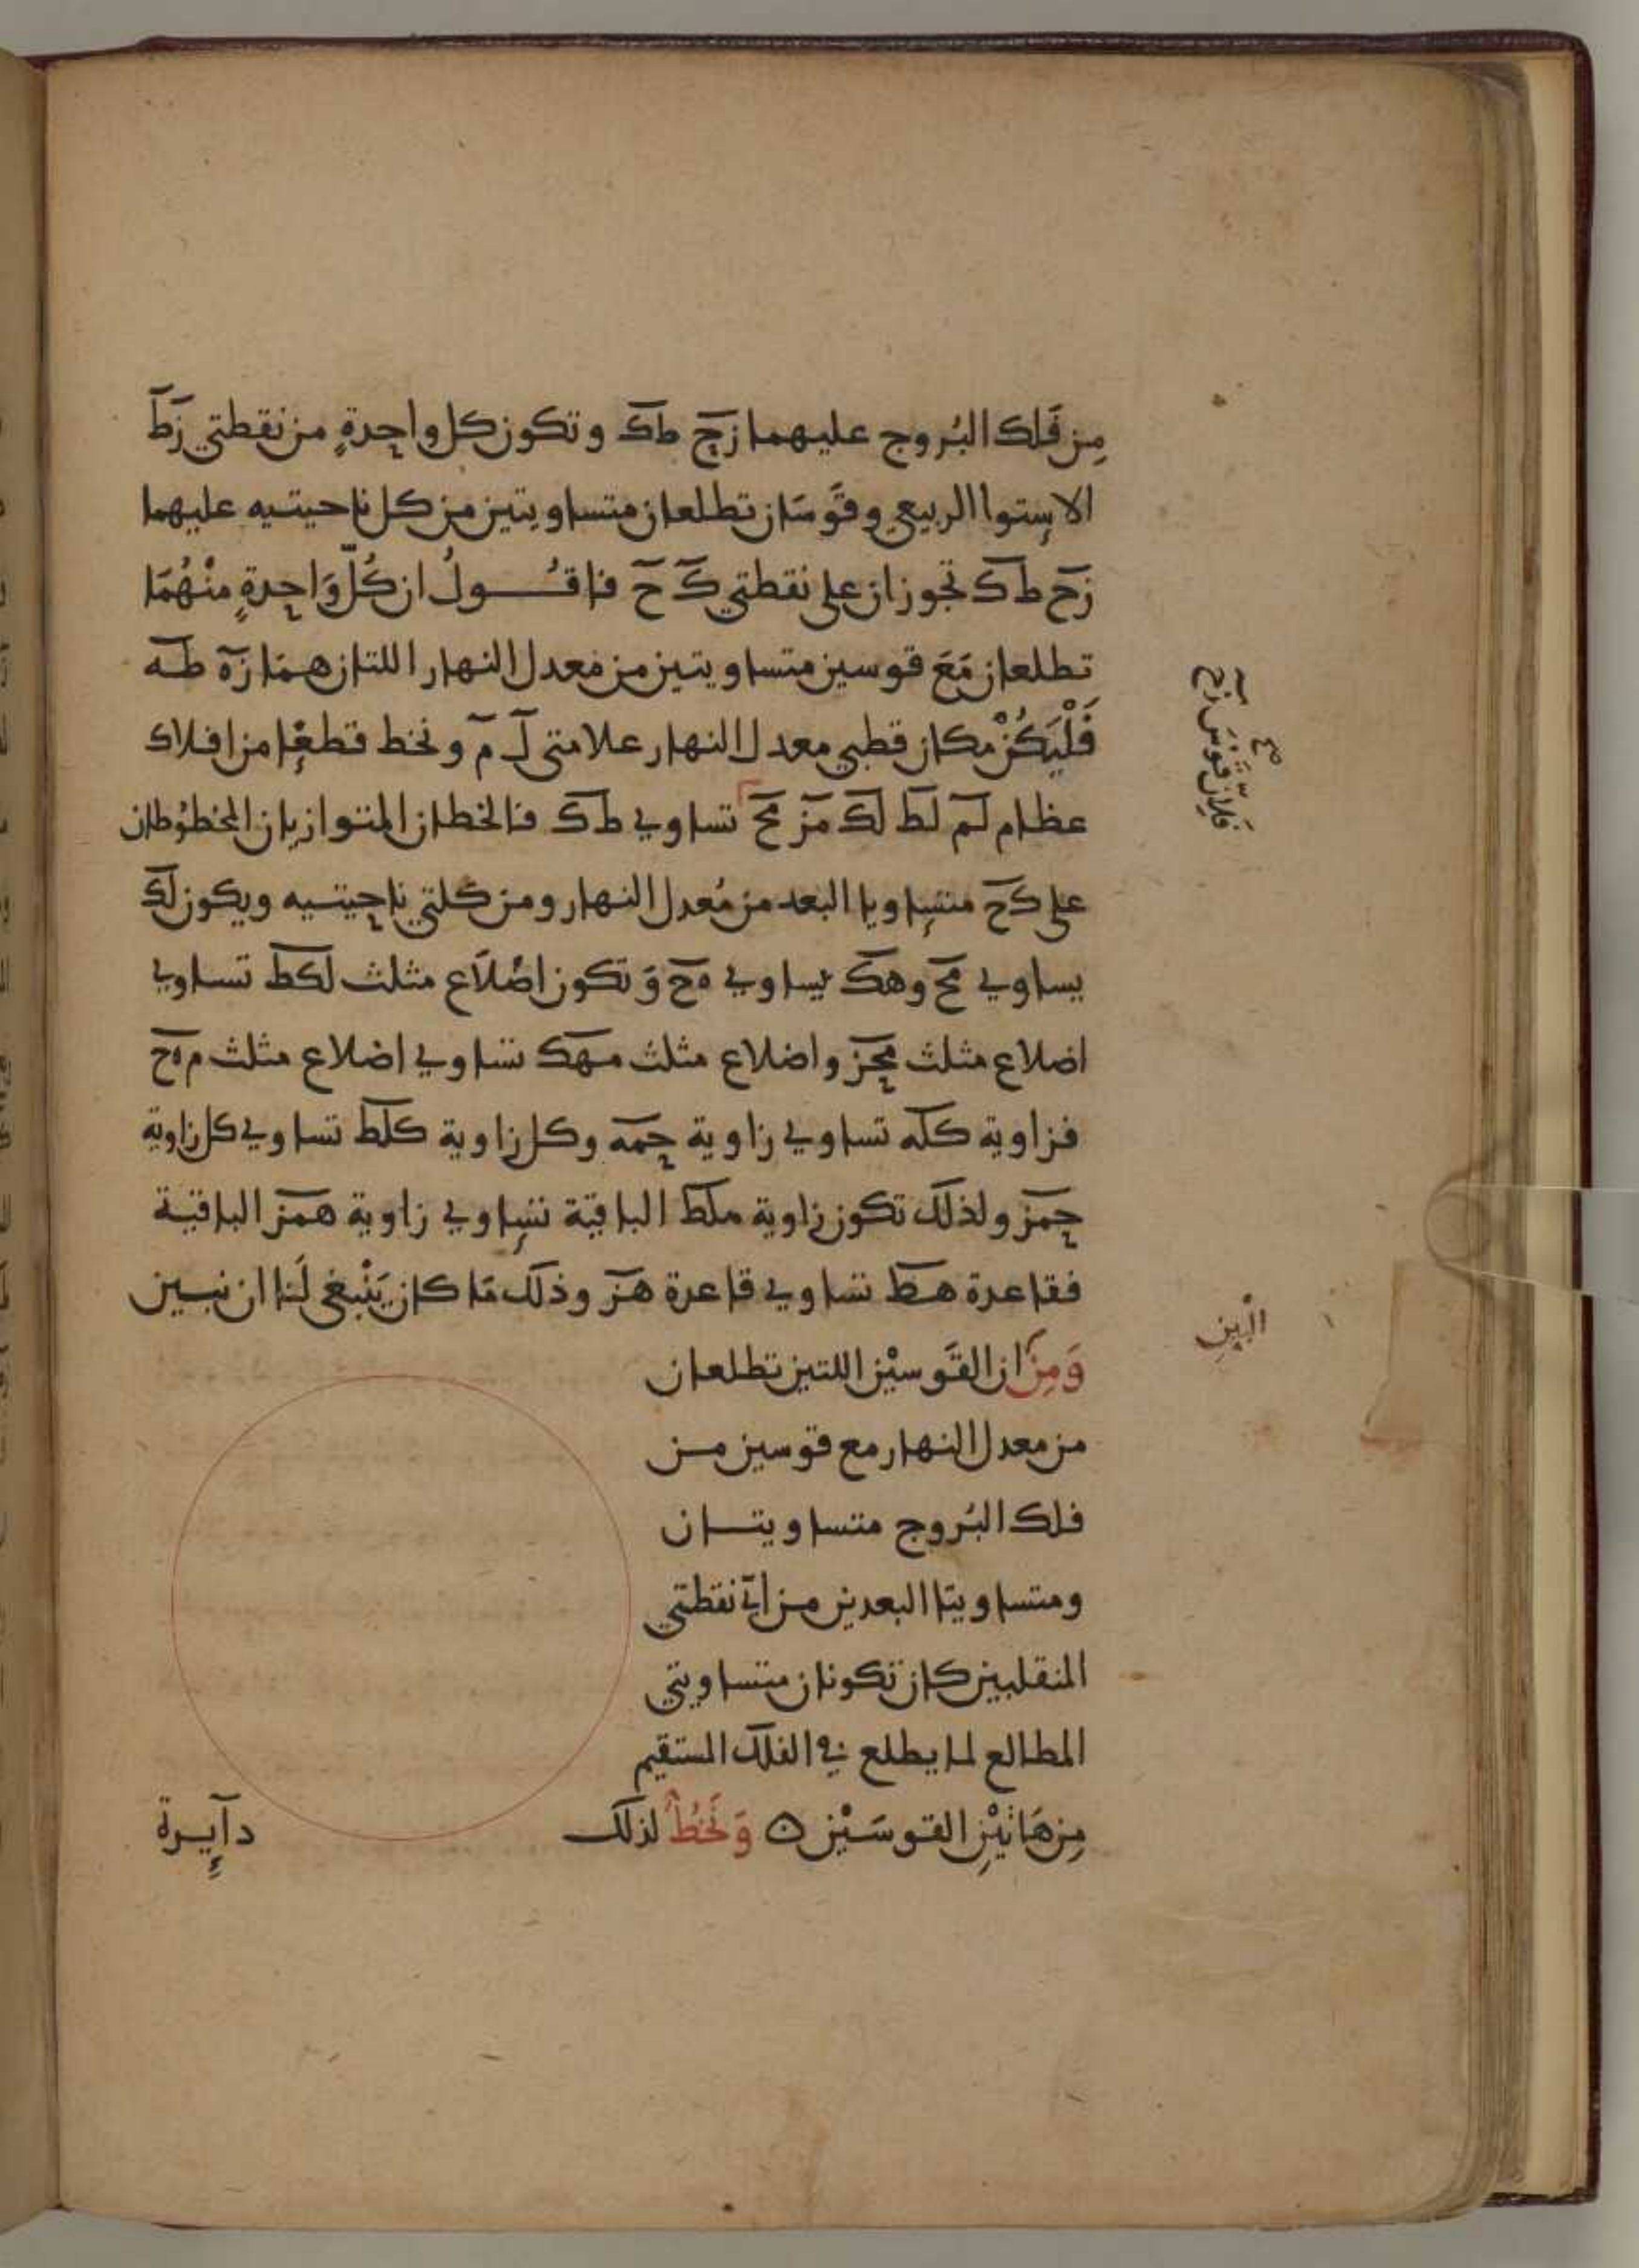 مِن فَلك البُروج عليهما زح طك وتكون كل واحِدةٍ من نقطتي زط
الاستوا الربيعي وقَوسَان تطلعان متساويتين من كل ناحيتيه عليهما
زح طك تجوزان على نقطتي ك ح فاقول ان كُلّ وَاحِدةٍ منْهُمَا
تطلعان مَعَ قوسين متساويتين من معدل النهار اللتان همَا زه طه
فَلْيَكُنْ مكان قطبي معدل النهار علامتي ل م ونخط قطعًا من افلاك
عظام لم لط لك مز مح تساوي طك فالخطان المتوازيان المخطُوطان
على كح متساويا البعد من مُعدل النهار ومن كلتي ناحيتيه ويكون لك
يساوي مح وهك يساوي هح وَتكون اضْلَاع مثلث لكط تساوي
اضلاع مثلث محز واضلاع مثلث مهك تساوي اضلاع مثلث مهح
فزاوية كله تساوي زاوية حمه وكل زاوية كلط تساوي كل زاوية
حمز ولذلك تكون زاوية هلط الباقية تساوي زاوية همز الباقية
فقاعدة هط تساوي قاعدة هز وذلك مَا كان يَنْبغي لَنا ان نبين
وَمِن ان القَوسيْن اللتين تطلعان
من معدل النهار مع قوسين من
فلك البُروج متساويتان
ومتساويتا البعدين من اية نقطتي
المنقلبين كان تكونان متساويتي
المطالع لما يطلع في الفلك المستقيم
مِن هَاتَيْنِ القوسَيْن ه وَنَخُطُّ لذلك
دآيرة
فلان قوسَ زح
البين